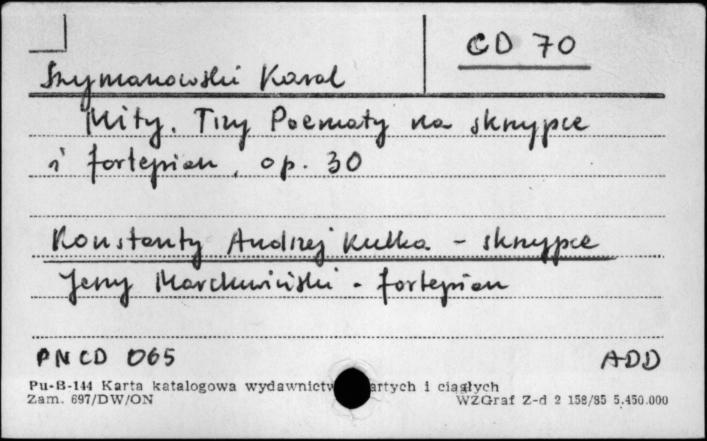 CD 70
Szymanowski Karol
Mity. Trzy Poematy na skrzypce
i fortepian, op. 30
Konstanty Andrzej Kulka - skrzypce
Jerzy Marchwiński - fortepian
PNCD 065 ADD
Pu-B-144 Karta katalogowa wydawnictw artych i ciągłych
Zam. 697/DW/ON WZGraf Z-d 2 158/85 5.450.000